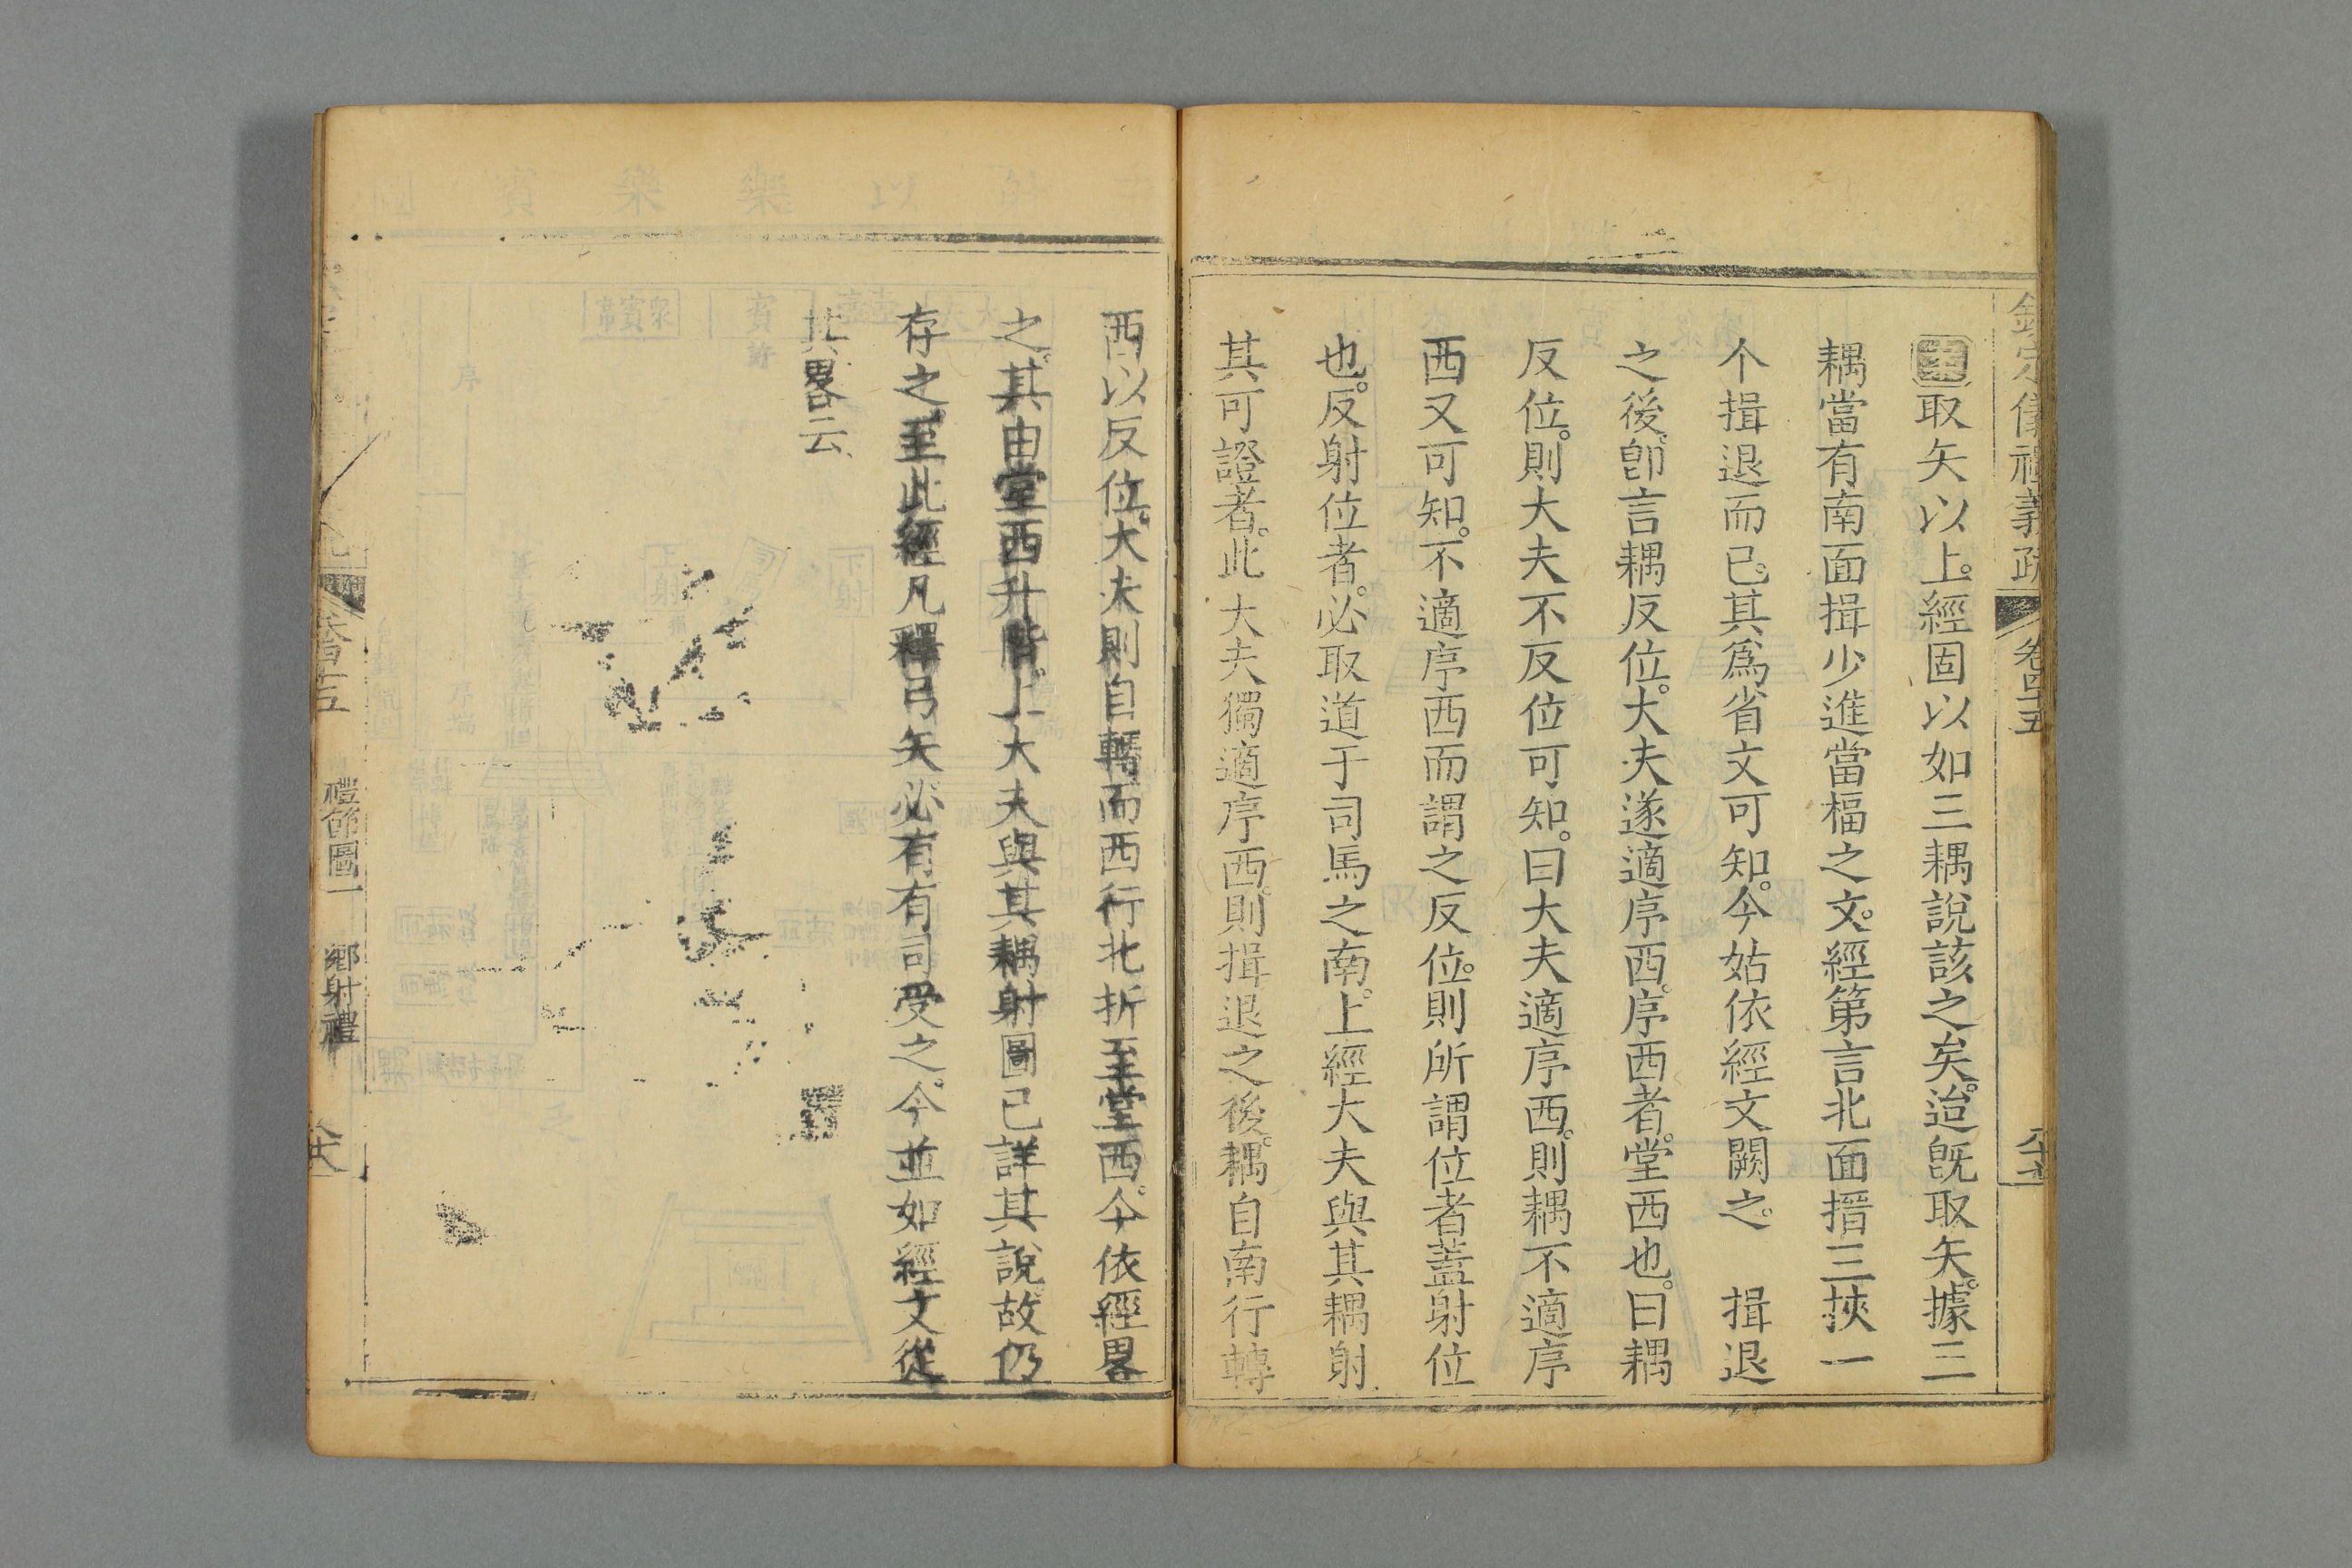 欽定儀禮義疏 卷四十五
案取矢以上。經固以如三耦說該之矣。迨旣取矢。據三
耦當有南面揖少進當楅之文。經第言北面搢三挾一
个揖退而已。其爲省文可知。今姑依經文闕之。 揖退
之後。卽言耦反位。大夫遂適序西。序西者。堂西也。曰耦
反位。則大夫不反位可知。曰大夫適序西。則耦不適序
西又可知。不適序西而謂之反位。則所謂位者蓋射位
也。反射位者。必取道于司馬之南。上經大夫與其耦射
其可證者。此大夫獨適序西。則揖退之後。耦自南行轉
西以反位。大夫則自轉而西行北折至堂西。今依經畧
之。其由堂西升階。上大夫與其耦射圖已詳其說。故仍
存之。至此經凡釋弓矢必有有司受之。今並如經文從
其畧云
禮節圖一 鄉射禮